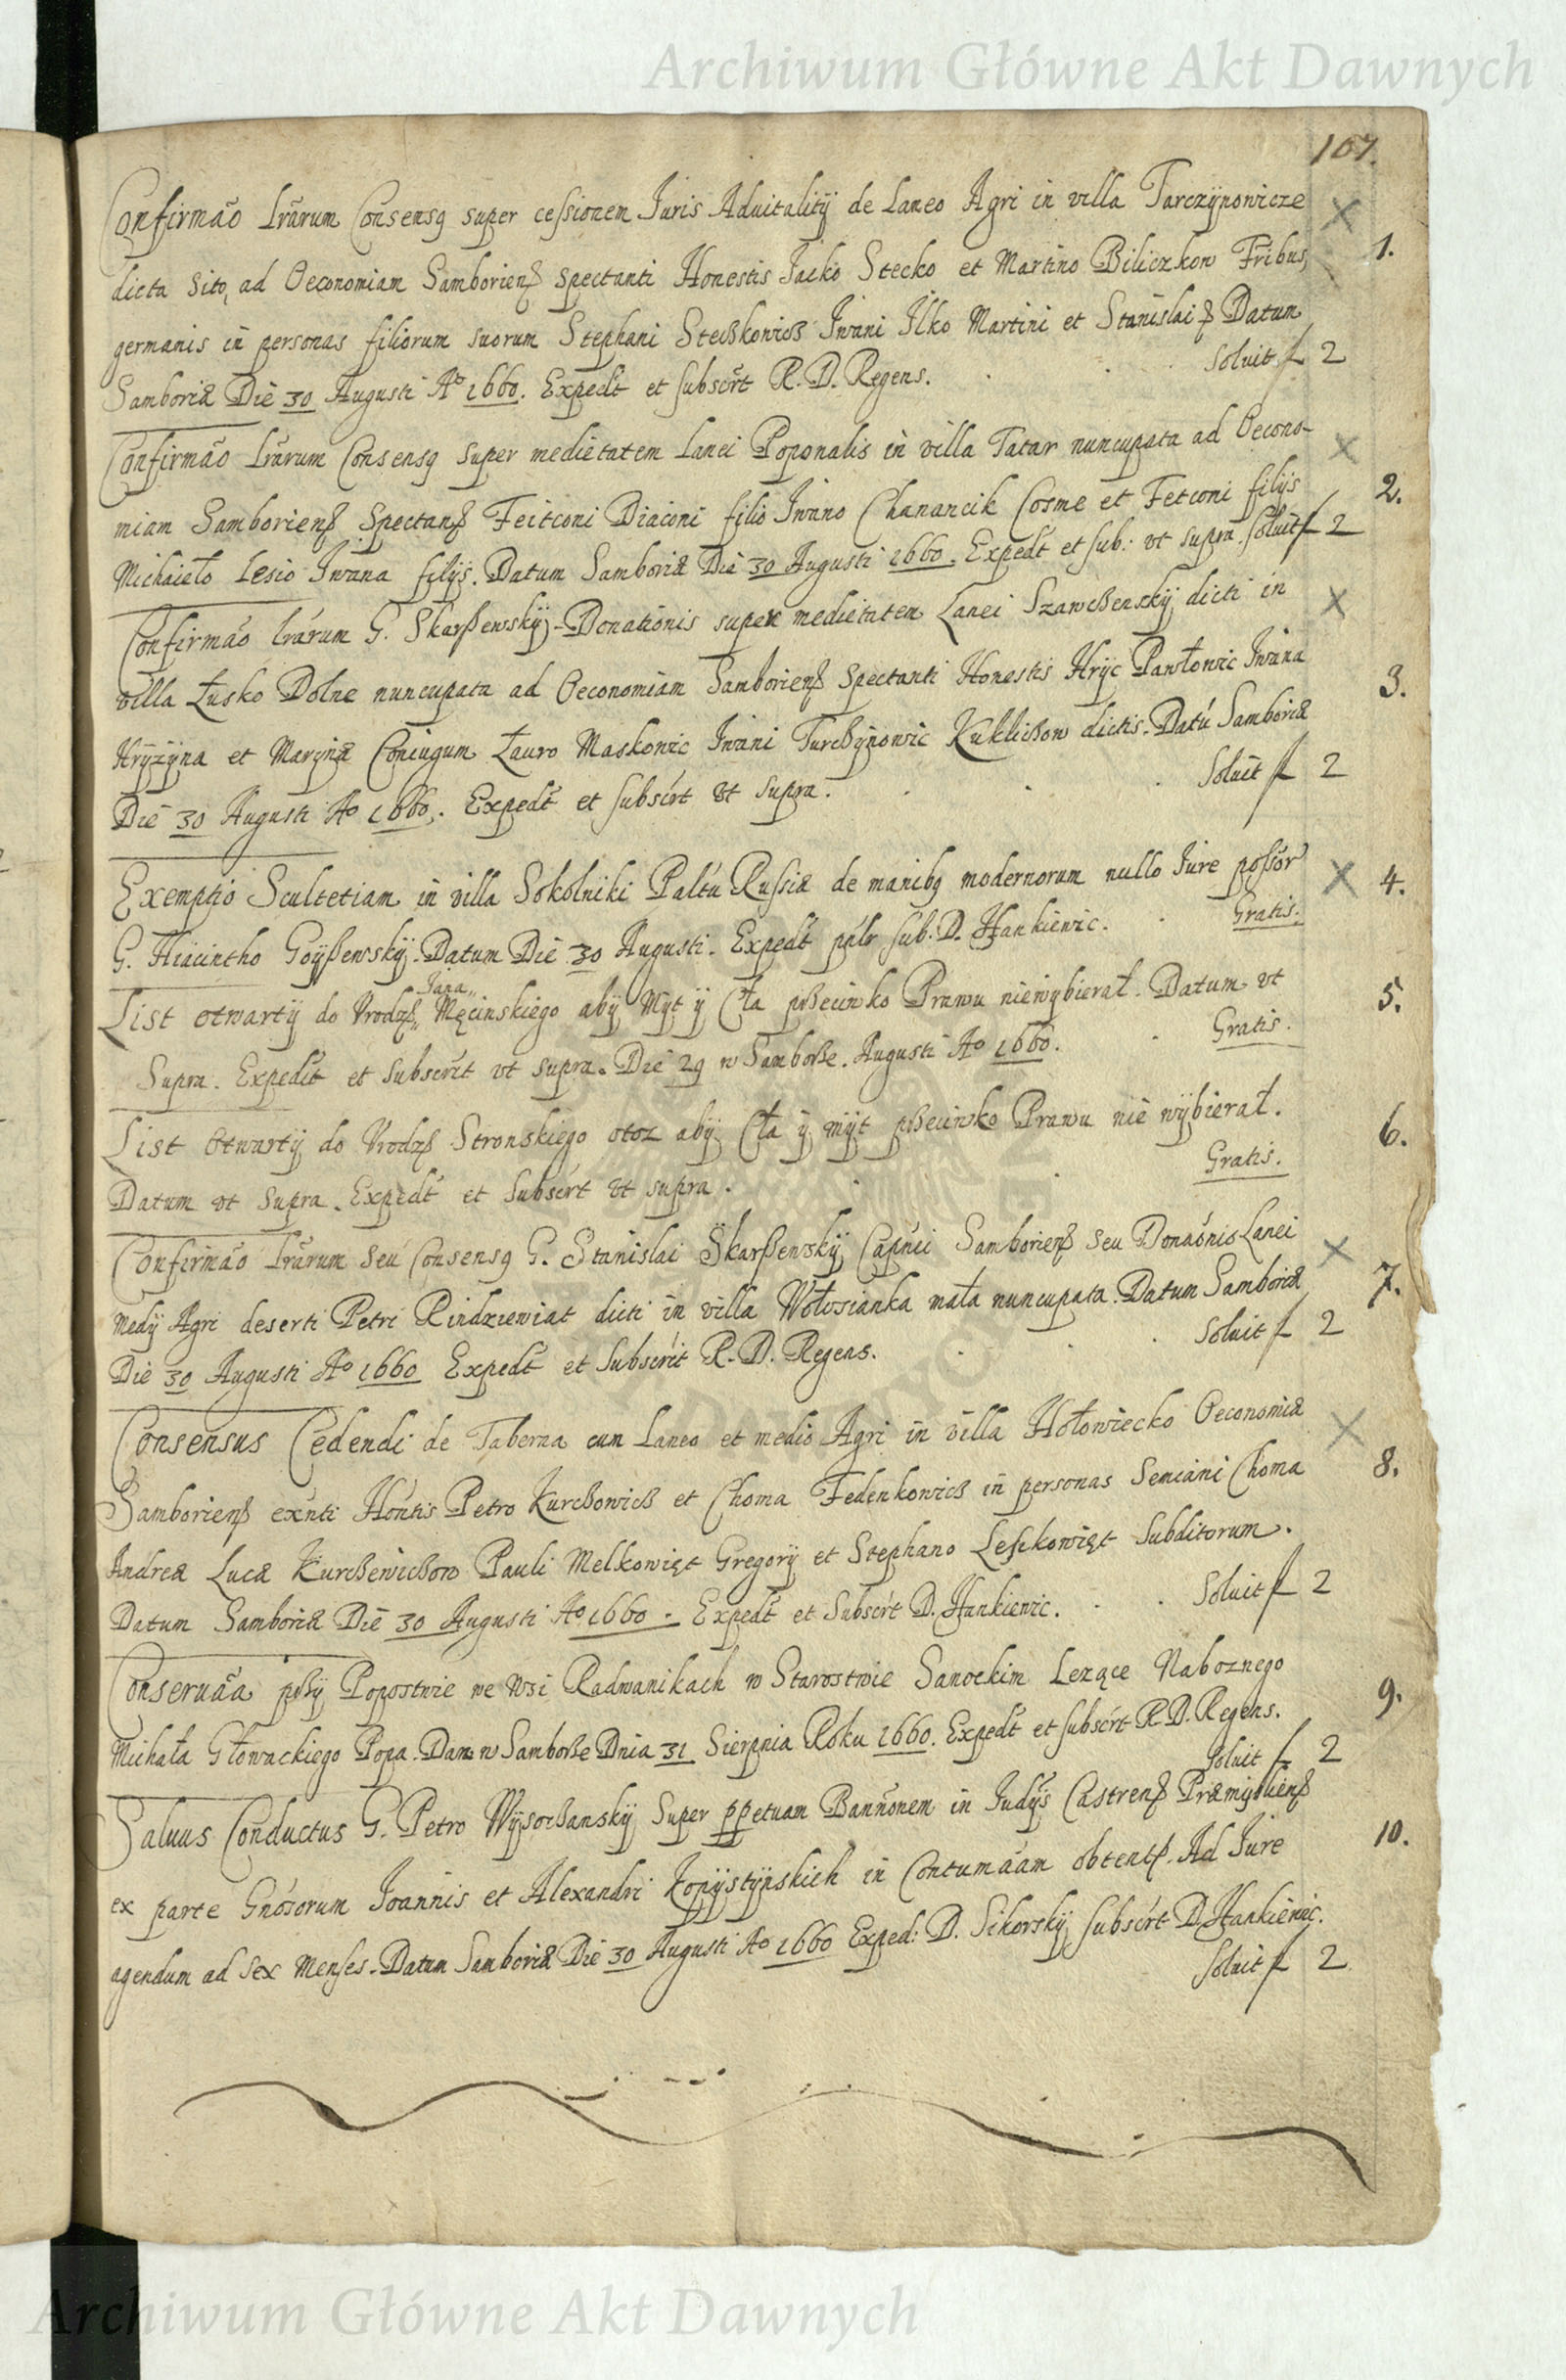 Archiwum Główne Akt Dawnych
107.
Confirmão Lrãrum Consensq super cessionem Juris Aduitalitÿ de Laneo Agri in villa Tarczÿnowicze
dicta Sito, ad Oeconomiam Samboriens spectanti Honestis Jaćko Stecko et Martino Biliczkow Fribus 1.
germanis in personas filiorum suorum Stephani Steckowicz Iwani Ilko Martini et Stanislai. Datum
Samboriæ Die 30 Augusti Aº 1660. Expedt et subscrt R. D. Regens. Soluit f 2
Confirmão Lrãrum Consensq super medietatem Lanei Poponalis in villa Tatar nuncupata ad Oecono-
miam Samboriens Spectans Feitconi Diaconi filio Iwano Chanancik Cosme et Fetconi filijs 2.
Michaieło Lesio Iwana filijs. Datum Samboriæ Die 30 Augusti 1660. Expedt et sub: vt supra. Soluit f 2
Confirmáo Lrárum G. Skarszewskÿ Donationis super medietatem Lanei Szawczenskÿ dicti in
villa Łusko Dolne nuncupata ad Oeconomiam Samboriens Spectanti Honestis Hrÿc Pawłowic Iwana 3.
Hrÿzÿna et Marÿnæ Coniugum Łauro Maskowic Iwani Turczÿnowic Kukliczow dictis. Datú Samboriæ
Die 30 Augusti Aº 1660. Expedt et subscrt vt supra. Soluit f 2
Exemptio Scultetiam in villa Sokolniki Paltú Russiæ de manibq modernorum nullo Iure possor 4.
G. Hiacintho Goÿszewskÿ. Datum Die 30 Augusti. Expedt pnlr sub. D. Hankiewic. Gratis.
Jana
List otwartÿ do Vrodz. Męcinskiego abÿ Mÿt ÿ Cła przeciwko Prawu niewÿbierał. Datum vt 5.
Supra. Expedit et subscrit vt supra. Die 29 w Samborze. Augusti Aº 1660. Gratis.
List otwartÿ do Vrodz Stronskiego otoz abÿ Cła ÿ mÿt przeciwko Prawu nie wÿbierał. 6.
Datum vt supra. Expedt et subscrt vt supra. Gratis.
Confirmáo Lrárum seu Consensq G. Stanislai Skarszewskÿ Capnei Samboriens seu Donaónis Lanei
medÿ Agri deserti Petri Rindziewiat dicti in villa Wołosianka mała nuncupata. Datum Samboriæ 7.
Die 30 Augusti Aº 1660 Expedt et subscrit R. D. Regens. Soluit f 2
Consensus Cedendi de Taberna cum Laneo et medio Agri in villa Hołowiecko Oeconomiæ
Samboriens exnti Hontis Petro Kurczowicz et Choma Fedenkowicz in personas Semiani Choma 8.
Andreæ Lucæ Kurczewiczow Pauli Melkowięt Gregorÿ et Stephano Leszkowięt Subditorum.
Datum Samboriæ Die 30 Augusti Aº 1660. Expedt et subscrt D. Hankiewic. Soluit f 2
Conseruãa przÿ Popostwie we Wsi Radwanikach w Starostwie Sanockim Lezące Naboznego 9.
Michała Głowackiego Popa. Dan w Samborze Dnia 31 Sierpnia Roku 1660. Expedt et subscrt R. D. Regens.
Soluit f 2
Saluus Conductus G. Petro Wÿsoczanskÿ super ppetuam Bannõnem in Judÿs Castrens Præmisliens 10.
ex parte Gnósorum Joannis et Alexandri Kopÿstÿnskich in Contumáam obtent. Ad Iure
agendum ad sex menses. Datum Samboriæ Die 30 Augusti Aº 1660 Exped: D. Sikorskÿ subscrt D. Hankiewic.
Soluit f 2
Archiwum Główne Akt Dawnych